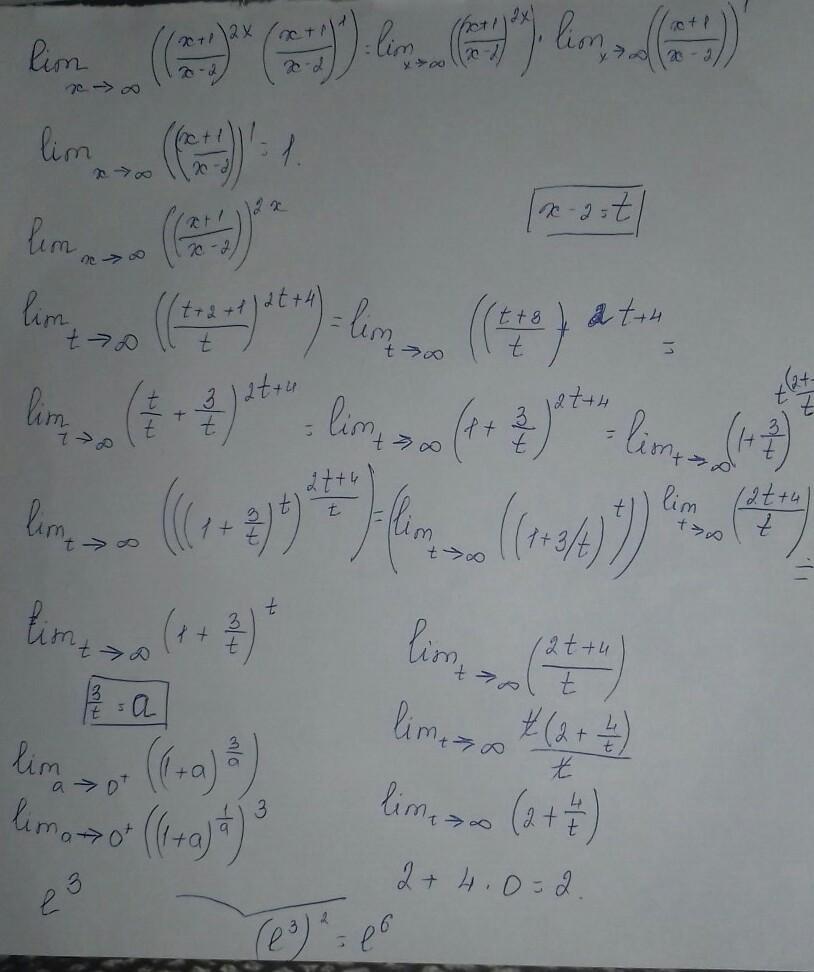 lim x→∞ (((x+1)/(x-2))^2x ((x+1)/(x-2))^1) = lim x→∞ (((x+1)/(x-2))^2x) · lim x→∞ (((x+1)/(x-2)))^1
lim x→∞ (((x+1)/(x-2)))^1 = 1.
lim x→∞ (((x+1)/(x-2)))^2x
x-2=t
lim t→∞ (((t+2+1)/t)^2t+4) = lim t→∞ (((t+3)/t) 2t+4 =
lim t→∞ (t/t + 3/t)^2t+4 = lim t→∞ (1+ 3/t)^2t+4 = lim t→∞ (1+ 3/t)^t(2t+/t
lim t→∞ (((1+ 3/t)^t)^(2t+4)/t) = (lim t→∞ ((1+3/t)^t)) lim t→∞ ((2t+4)/t) =
lim t→∞ (1+ 3/t)^t
3/t = a
lim a→0+ ((1+a)^3/a)
lim a→0+ ((1+a)^1/a)^3
e^3
lim t→∞ ((2t+4)/t)
lim t→∞ t(2+ 4/t)/t
lim t→∞ (2+ 4/t)
2+4·0=2.
(e^3)^2 = e^6